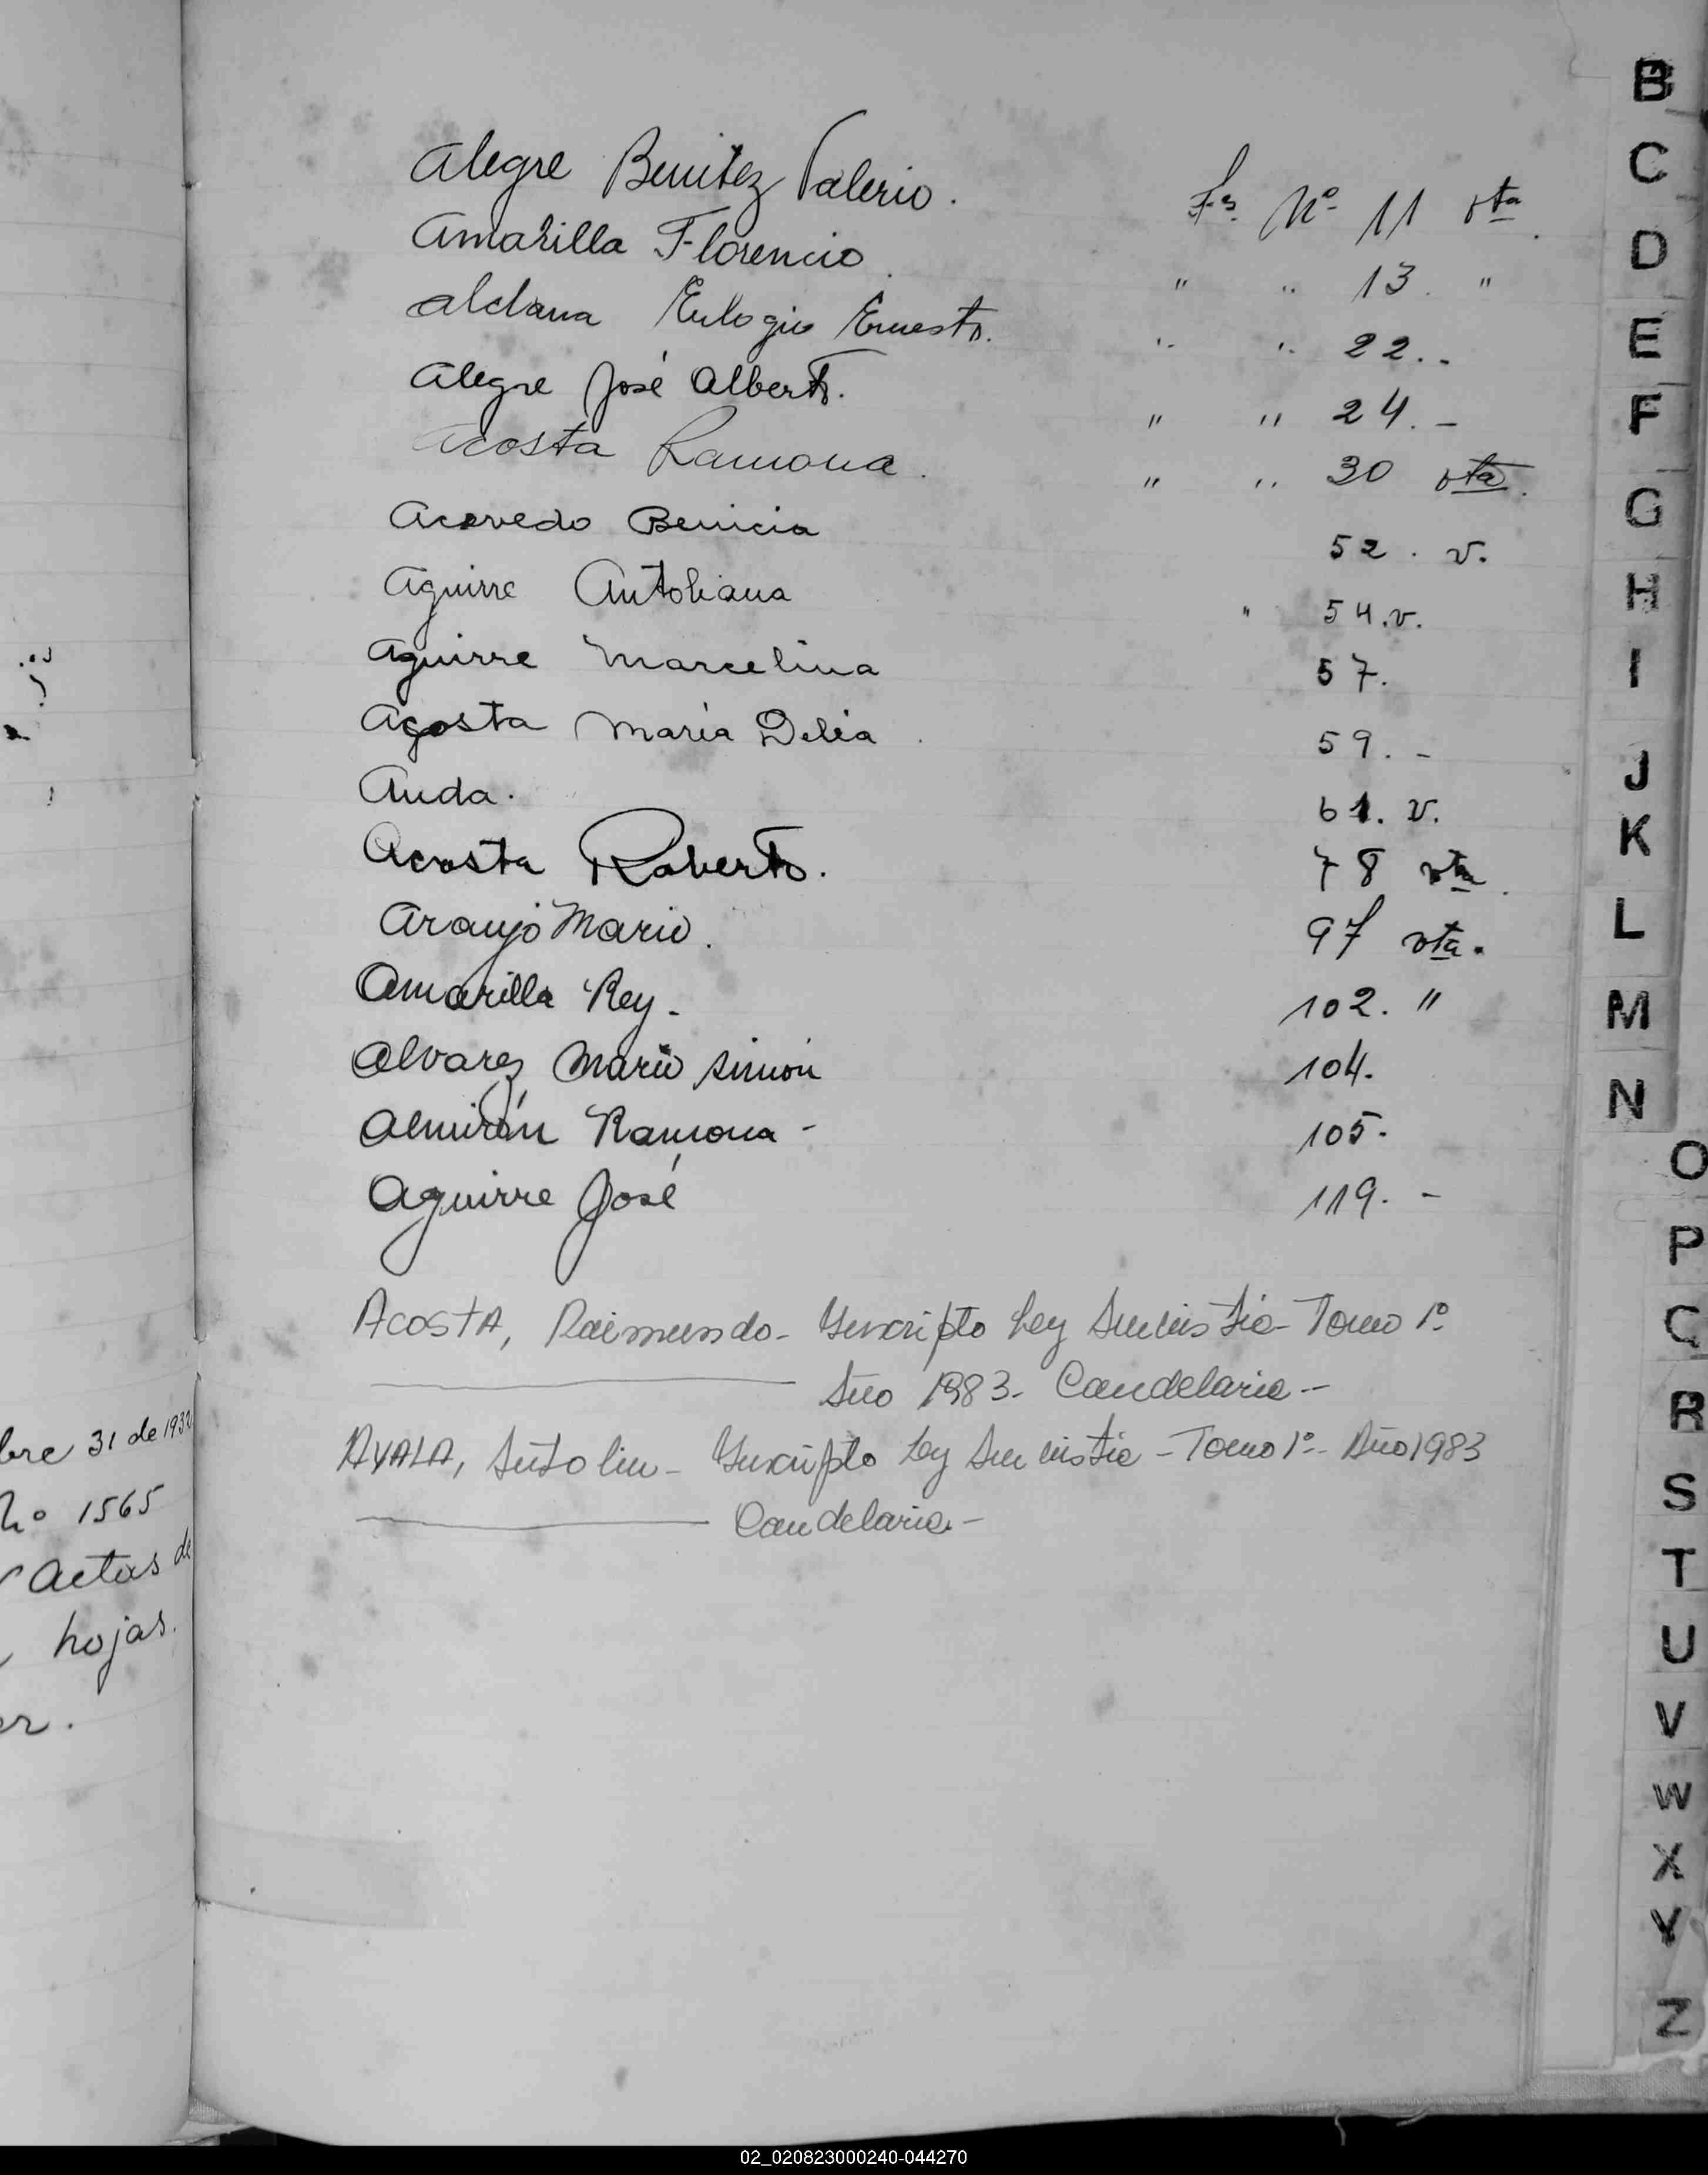 Alegre Benitez Valerio. Fs. Nº 11 vta.
Amarilla Florencio. " " 13. "
Aldana Eulogio Ernesto. " " 22. -
Alegre José Alberto. " " 24. -
Acosta Ramona. " " 30 vta.
Acevedo Benicia 52. v.
Aguirre Antoliana " 54. v.
Aguirre Marcelina 57.
Agosta Maria Delia. 59. -
Auda. 61. v.
Acosta Roberto. 78 vta.
Araujo Mario. 97 vta.
Amarilla Rey. 102. "
Alvarez Mario Simón 104.
Almirón Ramona - 105.
Aguirre José 119. -
ACOSTA, Raimundo - Inscripto Ley Amnistia - Tomo 1º
Año 1983 - Candelaria -
AYALA, Antolin - Inscripto Ley Amnistia - Tomo 1º - Año 1983
Candelaria -
bre 31 de 1932
Nº 1565
Actas de
hojas.
er.
B
C
D
E
F
G
H
I
J
K
L
M
N
O
P
Q
R
S
T
U
V
W
X
Y
Z
02_020823000240-044270